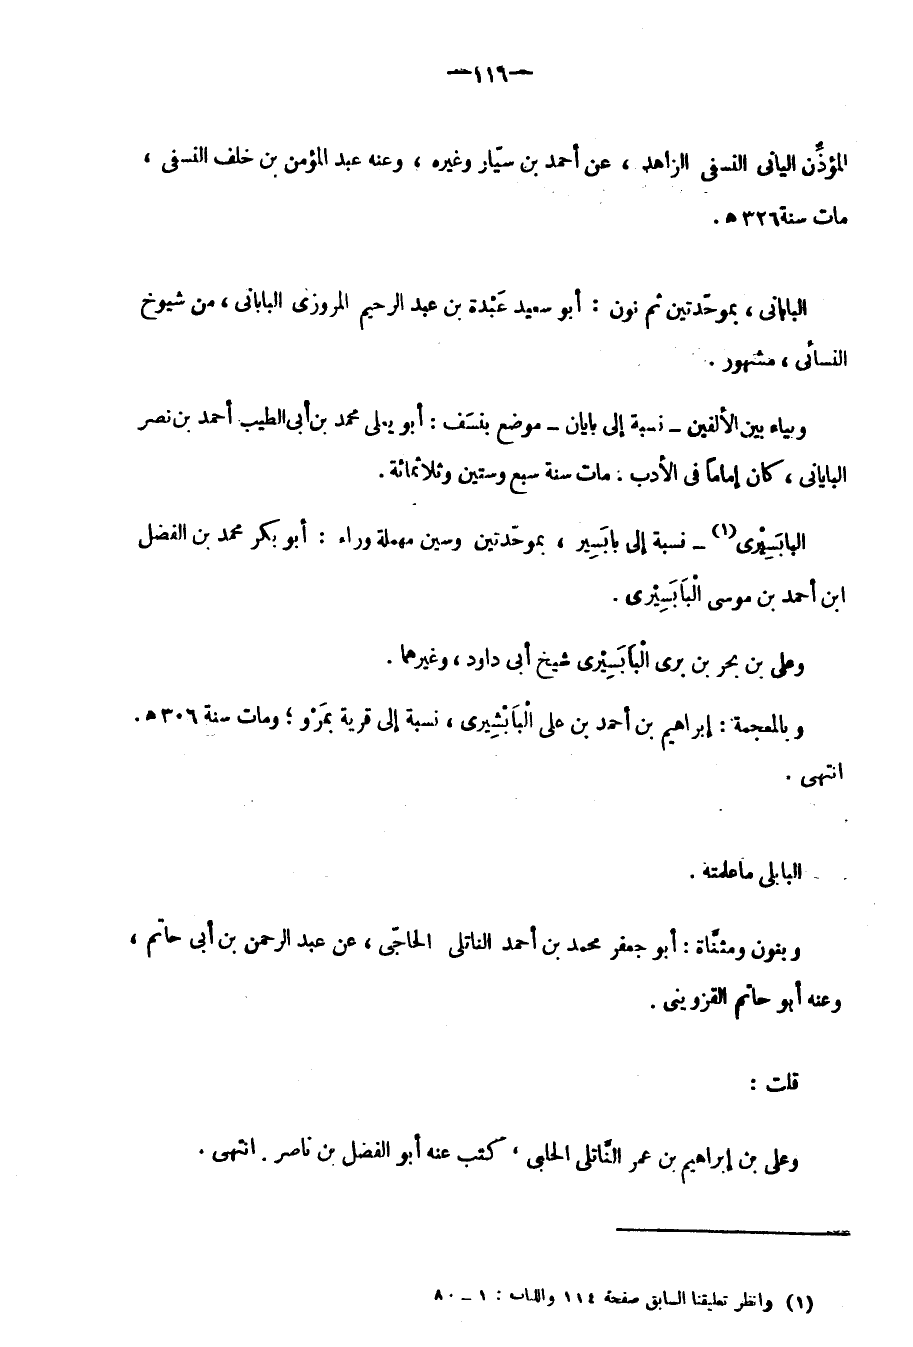 —١١٦—
المؤذِّن اليانى النسفى الزاهد ، عن أحمد بن سيّار وغيره ، وعنه عبد المؤمن بن خلف النسفى ،
مات سنة ٣٢٦ ه .
البابانى ، بموحّدتين ثم نون : أبو سعيد عَبْدة بن عبد الرحيم المروزى البابانى ، من شيوخ
النسأنى ، مشهور .
وبياء بين الألفين ــ نسبة إلى بايان ــ موضع بنسَف : أبو يعلى محمد بن أبى الطيب أحمد بن نصر
البايانى ، كان إماماً فى الأدب . مات سنة سبع وستين وثلاثمائة .
البابَسِيْرى(١) ــ نسبة إلى بابَسِير ، بموحّدتين وسين مهملة وراء : أبو بكر محمد بن الفضل
ابن أحمد بن موسى الْبَابَسِيْرى .
وعلى بن بحر بن برى الْبَابَسِيْرى شيخ أبى داود ، وغيرهما .
وبالمعجمة : إبراهيم بن أحمد بن على الْبَابْشِيرى ، نسبة إلى قرية بمَرْو ؛ ومات سنة ٣٠٦ ه .
انتهى .
البابلى ماعلمته .
وبنون ومثنَّاة : أبو جعفر محمد بن أحمد الناتلى الحاجّى ، عن عبد الرحمن بن أبى حاتم ،
وعنه أبو حاتم القزوينى .
قلت :
وعلى بن إبراهيم بن عمر النَّاتلى الحلبى ، كتب عنه أبو الفضل بن ناصر . انتهى .
(١) وانظر تعليقنا السابق صفحة ١١٤ واللباب : ١ ــ ٨٠